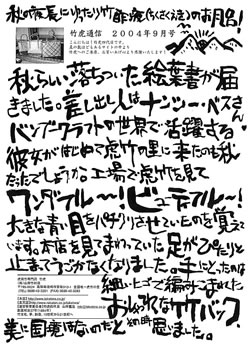 秋の夜長にゆったり竹酢液(ちくさくえき)のお風呂!
竹虎通信 2004年9月号
秋らしい落ちついた絵葉書が届
きました。差し出し人はナンシー・ベスさん
バンブークラフトの世界で活躍する
彼女がはじめて虎竹の里に来たのも秋
だったでしょうか。工場で虎竹を見て
ワンダフル〜!ビューティフル〜!
大きな青い目をパチクリさせていたのを覚えて
います。本店を見てまわっていた足がぴたりと
止まってうごかなくなりました。手にとったのは
細い竹ヒゴで編みこまれた
おしゃれな竹バッグ。
美に国境はないのだとその時思いました。